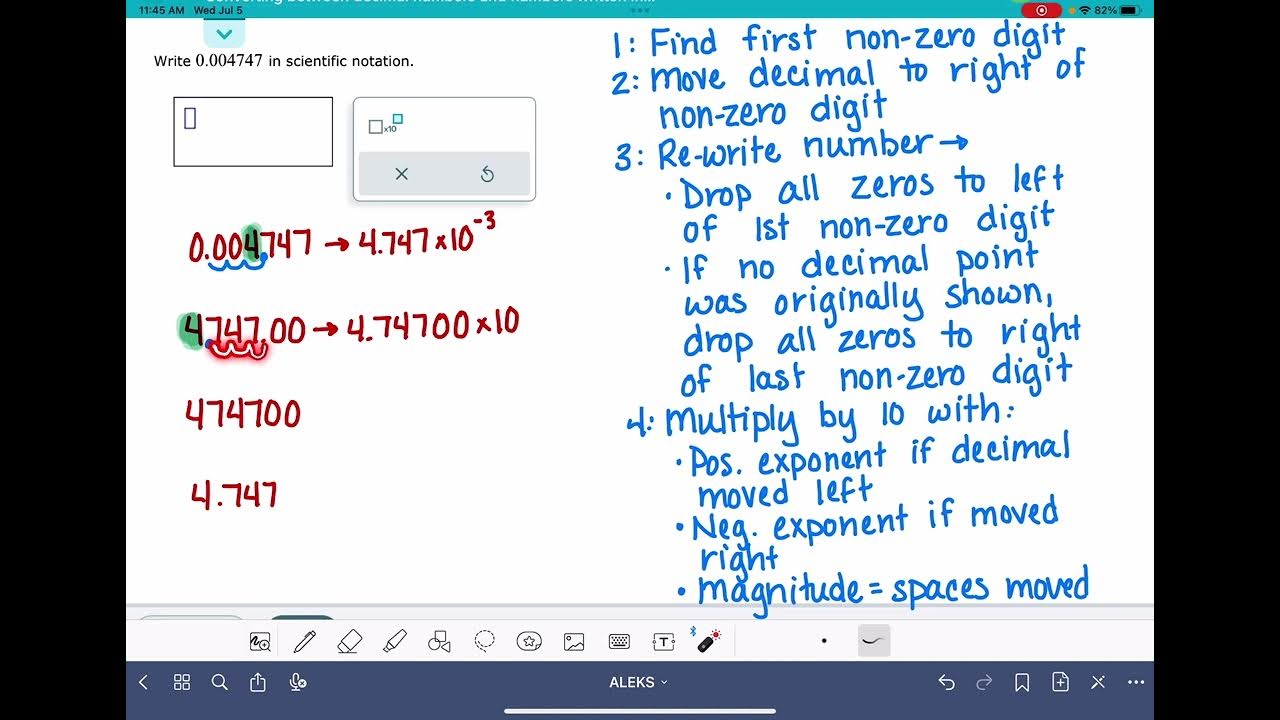 Converting between decimal numbers and numbers written in...
11:45 AM Wed Jul 5
82%
Write 0.004747 in scientific notation.
x10
0.004747 → 4.747 × 10⁻³
4747.00 → 4.74700 × 10
474700
4.747
1: Find first non-zero digit
2: Move decimal to right of
non-zero digit
3: Re-write number →
• Drop all zeros to left
of 1st non-zero digit
• If no decimal point
was originally shown,
drop all zeros to right
of last non-zero digit
4: Multiply by 10 with:
• Pos. exponent if decimal
moved left
• Neg. exponent if moved
right
• Magnitude = spaces moved
ALEKS